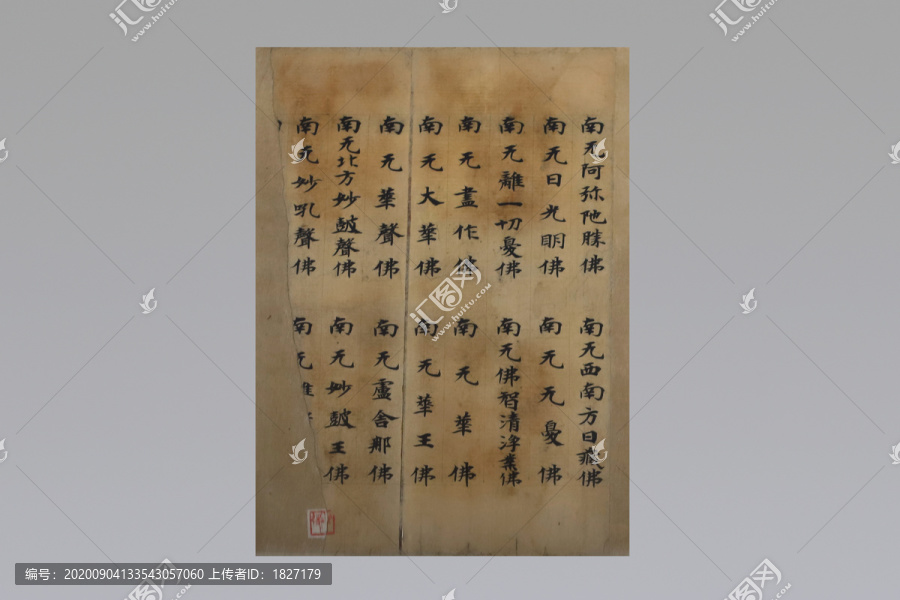 南无阿弥陁佛 南无西南方日藏佛
南无日光明佛 南无无憂佛
南无離一切憂佛 南无佛智清淨業佛
南无盡作佛 南无華佛
南无大華佛 南无華王佛
南无華聲佛 南无盧舍那佛
南无北方妙皷聲佛 南无妙皷王佛
南无妙吼聲佛 南无
汇图网
www.huitu.com
编号：20200904133543057060 上传者ID：1827179